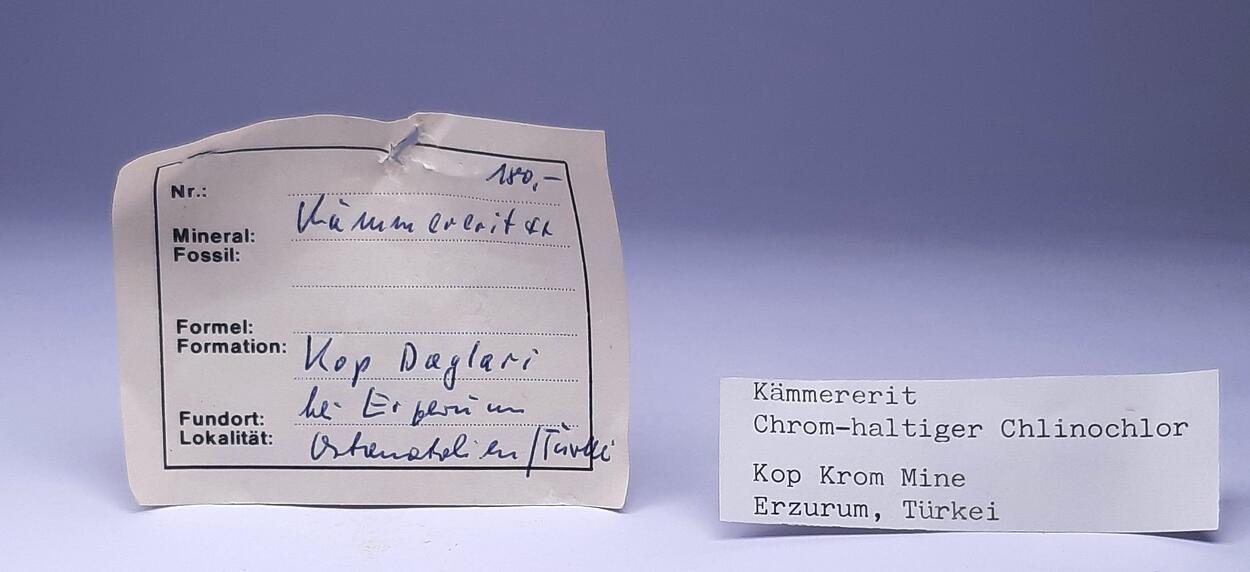 180,-
Nr.:
Kämmererit xx
Mineral:
Fossil:
Formel:
Formation:
Kop Daglari
bei Erzerum
Fundort:
Lokalität:
Ostanatolien/Türkei
Kämmererit
Chrom-haltiger Chlinochlor
Kop Krom Mine
Erzurum, Türkei